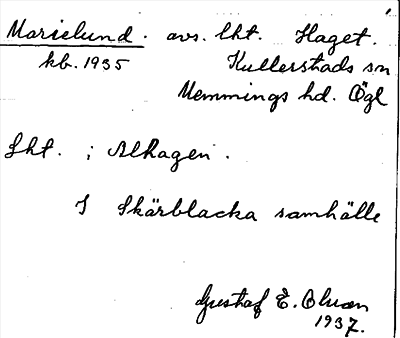 Marielund. avs. lht. Haget.
kb. 1935 Kullerstads sn
Memmings hd. Ögl
Lht. i Alhagen.
I Skärblacka samhälle
Gustaf E. Olsson
1937.